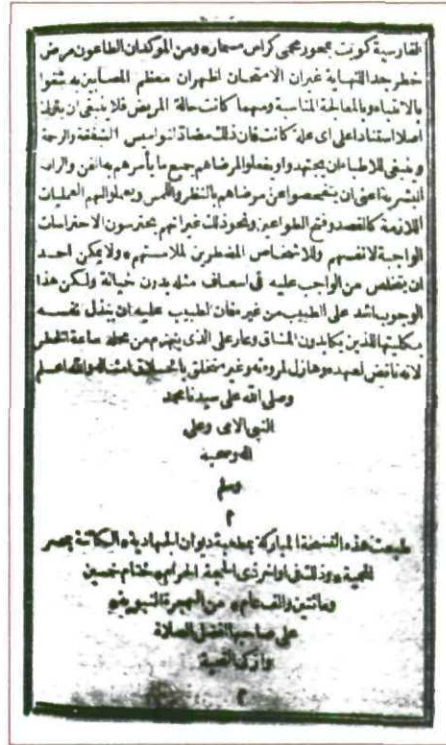 الفارسية كويت جمهور عجمى كراس مسمار ومن الموكد ان الطاعون مرض
خطر جدا للنهاية غير ان الامتحان اظهر ان معظم المصابين به شفوا
بالانتباه وبالمعالجة المناسبة ومهما كانت حالة المريض فلا ينبغى ان يترك
اصلا استنادا على اى علة كانت فان ذلك مضاد لنواميس الشفقة والرحمة
وينبغى للاطباء ان يجتهدوا ويفعلوا لمرضاهم جميع ما يأمرهم به الفن والرأفة
البشرية اعنى ان يتفحصوا عن مرضاهم بالنظر واللمس ويعملوا لهم العمليات
اللازمة كالفصد وفتح الطواعين ونحو ذلك غير انهم يحترسون الاحتراسات
الواجبة لانفسهم وللاشخاص المضطرين لملامستهم ولا يمكن احد
ان يتخلص من الواجب عليه فى اسعاف مثله بدون خيانة ولكن هذا
الوجوب اشد على الطبيب من غيره فان الطبيب عليه ان يبذل نفسه
بكليتها للذين يكابدون المشاق وعار على الذى ينهزم من محله ساعة الخطر
لانه ناقض لعهده وهازل لمروءته وغير متخلق باخلاق امثاله والله اعلم
وصلى الله على سيدنا محمد
النبى الامى وعلى
اله وصحبه
وسلم
م
طبعت هذه النسخة المباركة بمطبعة ديوان الجهادية الكائنة بمصر
المحمية وذلك فى اواخر ذى الحجة الحرام ختام خمسين
ومائتين والف عام من الهجرة النبوية
على صاحبها افضل الصلاة
وازكى التحية
م